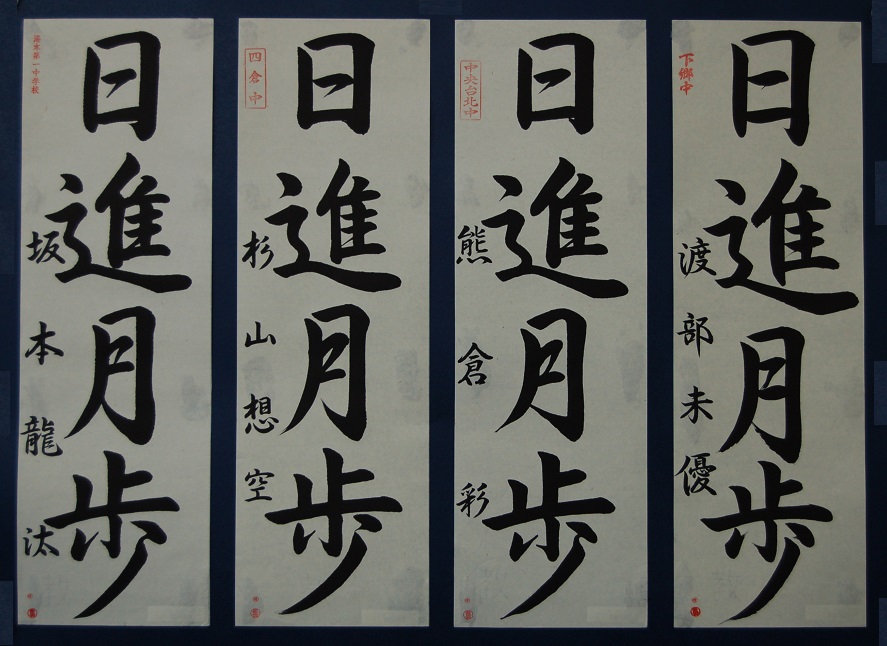 下郷中
日進月歩
渡部未優
中央台北中
日進月歩
熊倉彩
四倉中
日進月歩
杉山想空
日進月歩
坂本龍汰